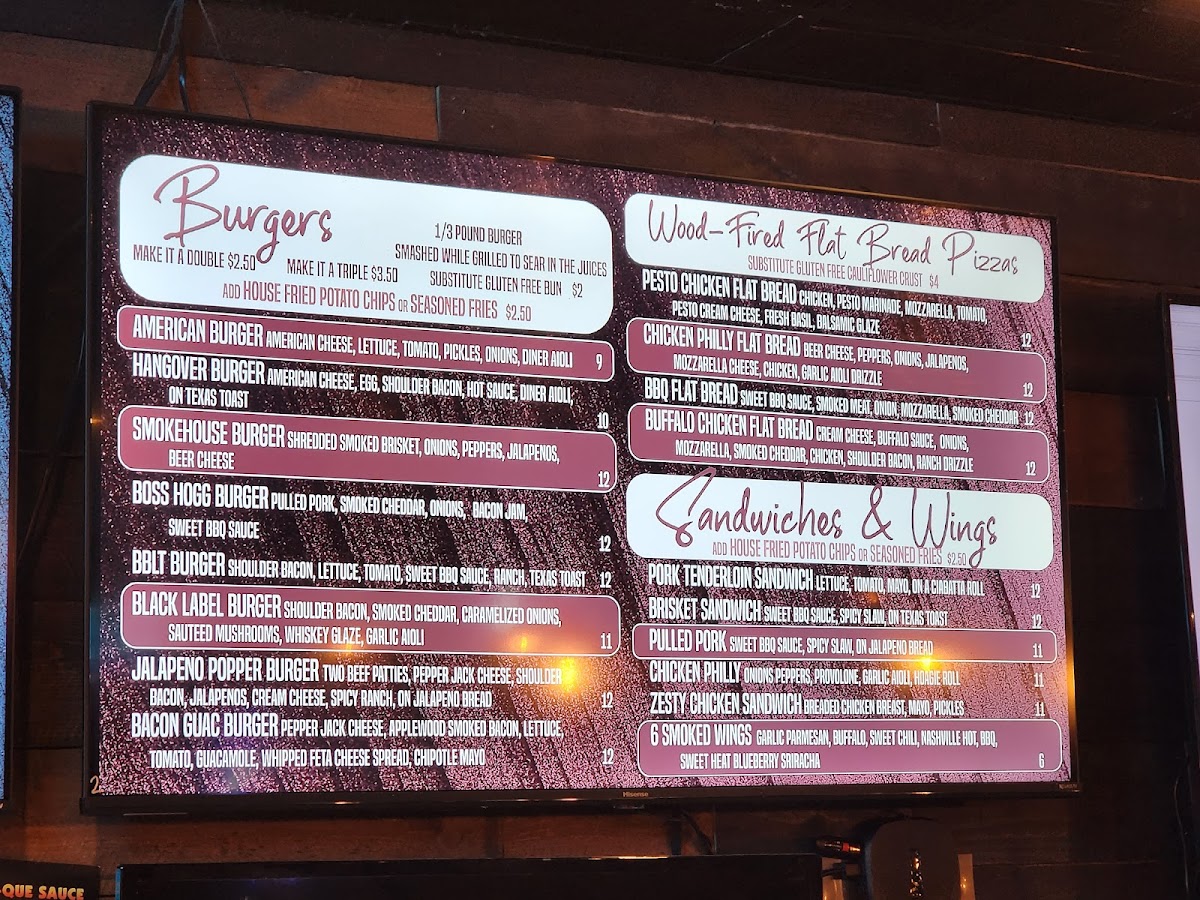 Burgers
1/3 POUND BURGER
SMASHED WHILE GRILLED TO SEAR IN THE JUICES
MAKE IT A DOUBLE $2.50 MAKE IT A TRIPLE $3.50 SUBSTITUTE GLUTEN FREE BUN $2
ADD HOUSE FRIED POTATO CHIPS OR SEASONED FRIES $2.50
AMERICAN BURGER AMERICAN CHEESE, LETTUCE, TOMATO, PICKLES, ONIONS, DINER AIOLI 9
HANGOVER BURGER AMERICAN CHEESE, EGG, SHOULDER BACON, HOT SAUCE, DINER AIOLI,
ON TEXAS TOAST 10
SMOKEHOUSE BURGER SHREDDED SMOKED BRISKET, ONIONS, PEPPERS, JALAPENOS,
BEER CHEESE 12
BOSS HOGG BURGER PULLED PORK, SMOKED CHEDDAR, ONIONS, BACON JAM,
SWEET BBQ SAUCE 12
BBLT BURGER SHOULDER BACON, LETTUCE, TOMATO, SWEET BBQ SAUCE, RANCH, TEXAS TOAST 12
BLACK LABEL BURGER SHOULDER BACON, SMOKED CHEDDAR, CARAMELIZED ONIONS,
SAUTEED MUSHROOMS, WHISKEY GLAZE, GARLIC AIOLI 11
JALAPENO POPPER BURGER TWO BEEF PATTIES, PEPPER JACK CHEESE, SHOULDER
BACON, JALAPENOS, CREAM CHEESE, SPICY RANCH, ON JALAPENO BREAD 12
BACON GUAC BURGER PEPPER JACK CHEESE, APPLEWOOD SMOKED BACON, LETTUCE,
TOMATO, GUACAMOLE, WHIPPED FETA CHEESE SPREAD, CHIPOTLE MAYO 12
Wood-Fired Flat Bread Pizzas
SUBSTITUTE GLUTEN FREE CAULIFLOWER CRUST $4
PESTO CHICKEN FLAT BREAD CHICKEN, PESTO MARINADE, MOZZARELLA, TOMATO,
PESTO CREAM CHEESE, FRESH BASIL, BALSAMIC GLAZE 12
CHICKEN PHILLY FLAT BREAD BEER CHEESE, PEPPERS, ONIONS, JALAPENOS,
MOZZARELLA CHEESE, CHICKEN, GARLIC AIOLI DRIZZLE 12
BBQ FLAT BREAD SWEET BBQ SAUCE, SMOKED MEAT, ONION, MOZZARELLA, SMOKED CHEDDAR 12
BUFFALO CHICKEN FLAT BREAD CREAM CHEESE, BUFFALO SAUCE, ONIONS,
MOZZARELLA, SMOKED CHEDDAR, CHICKEN, SHOULDER BACON, RANCH DRIZZLE 12
Sandwiches & Wings
ADD HOUSE FRIED POTATO CHIPS OR SEASONED FRIES $2.50
PORK TENDERLOIN SANDWICH LETTUCE, TOMATO, MAYO, ON A CIABATTA ROLL 12
BRISKET SANDWICH SWEET BBQ SAUCE, SPICY SLAW, ON TEXAS TOAST 12
PULLED PORK SWEET BBQ SAUCE, SPICY SLAW, ON JALAPENO BREAD 11
CHICKEN PHILLY ONIONS PEPPERS, PROVOLONE, GARLIC AIOLI, HOAGIE ROLL 11
ZESTY CHICKEN SANDWICH BREADED CHICKEN BREAST, MAYO, PICKLES 11
6 SMOKED WINGS GARLIC PARMESAN, BUFFALO, SWEET CHILI, NASHVILLE HOT, BBQ,
SWEET HEAT BLUEBERRY SRIRACHA 6
Hisense
-QUE SAUCE